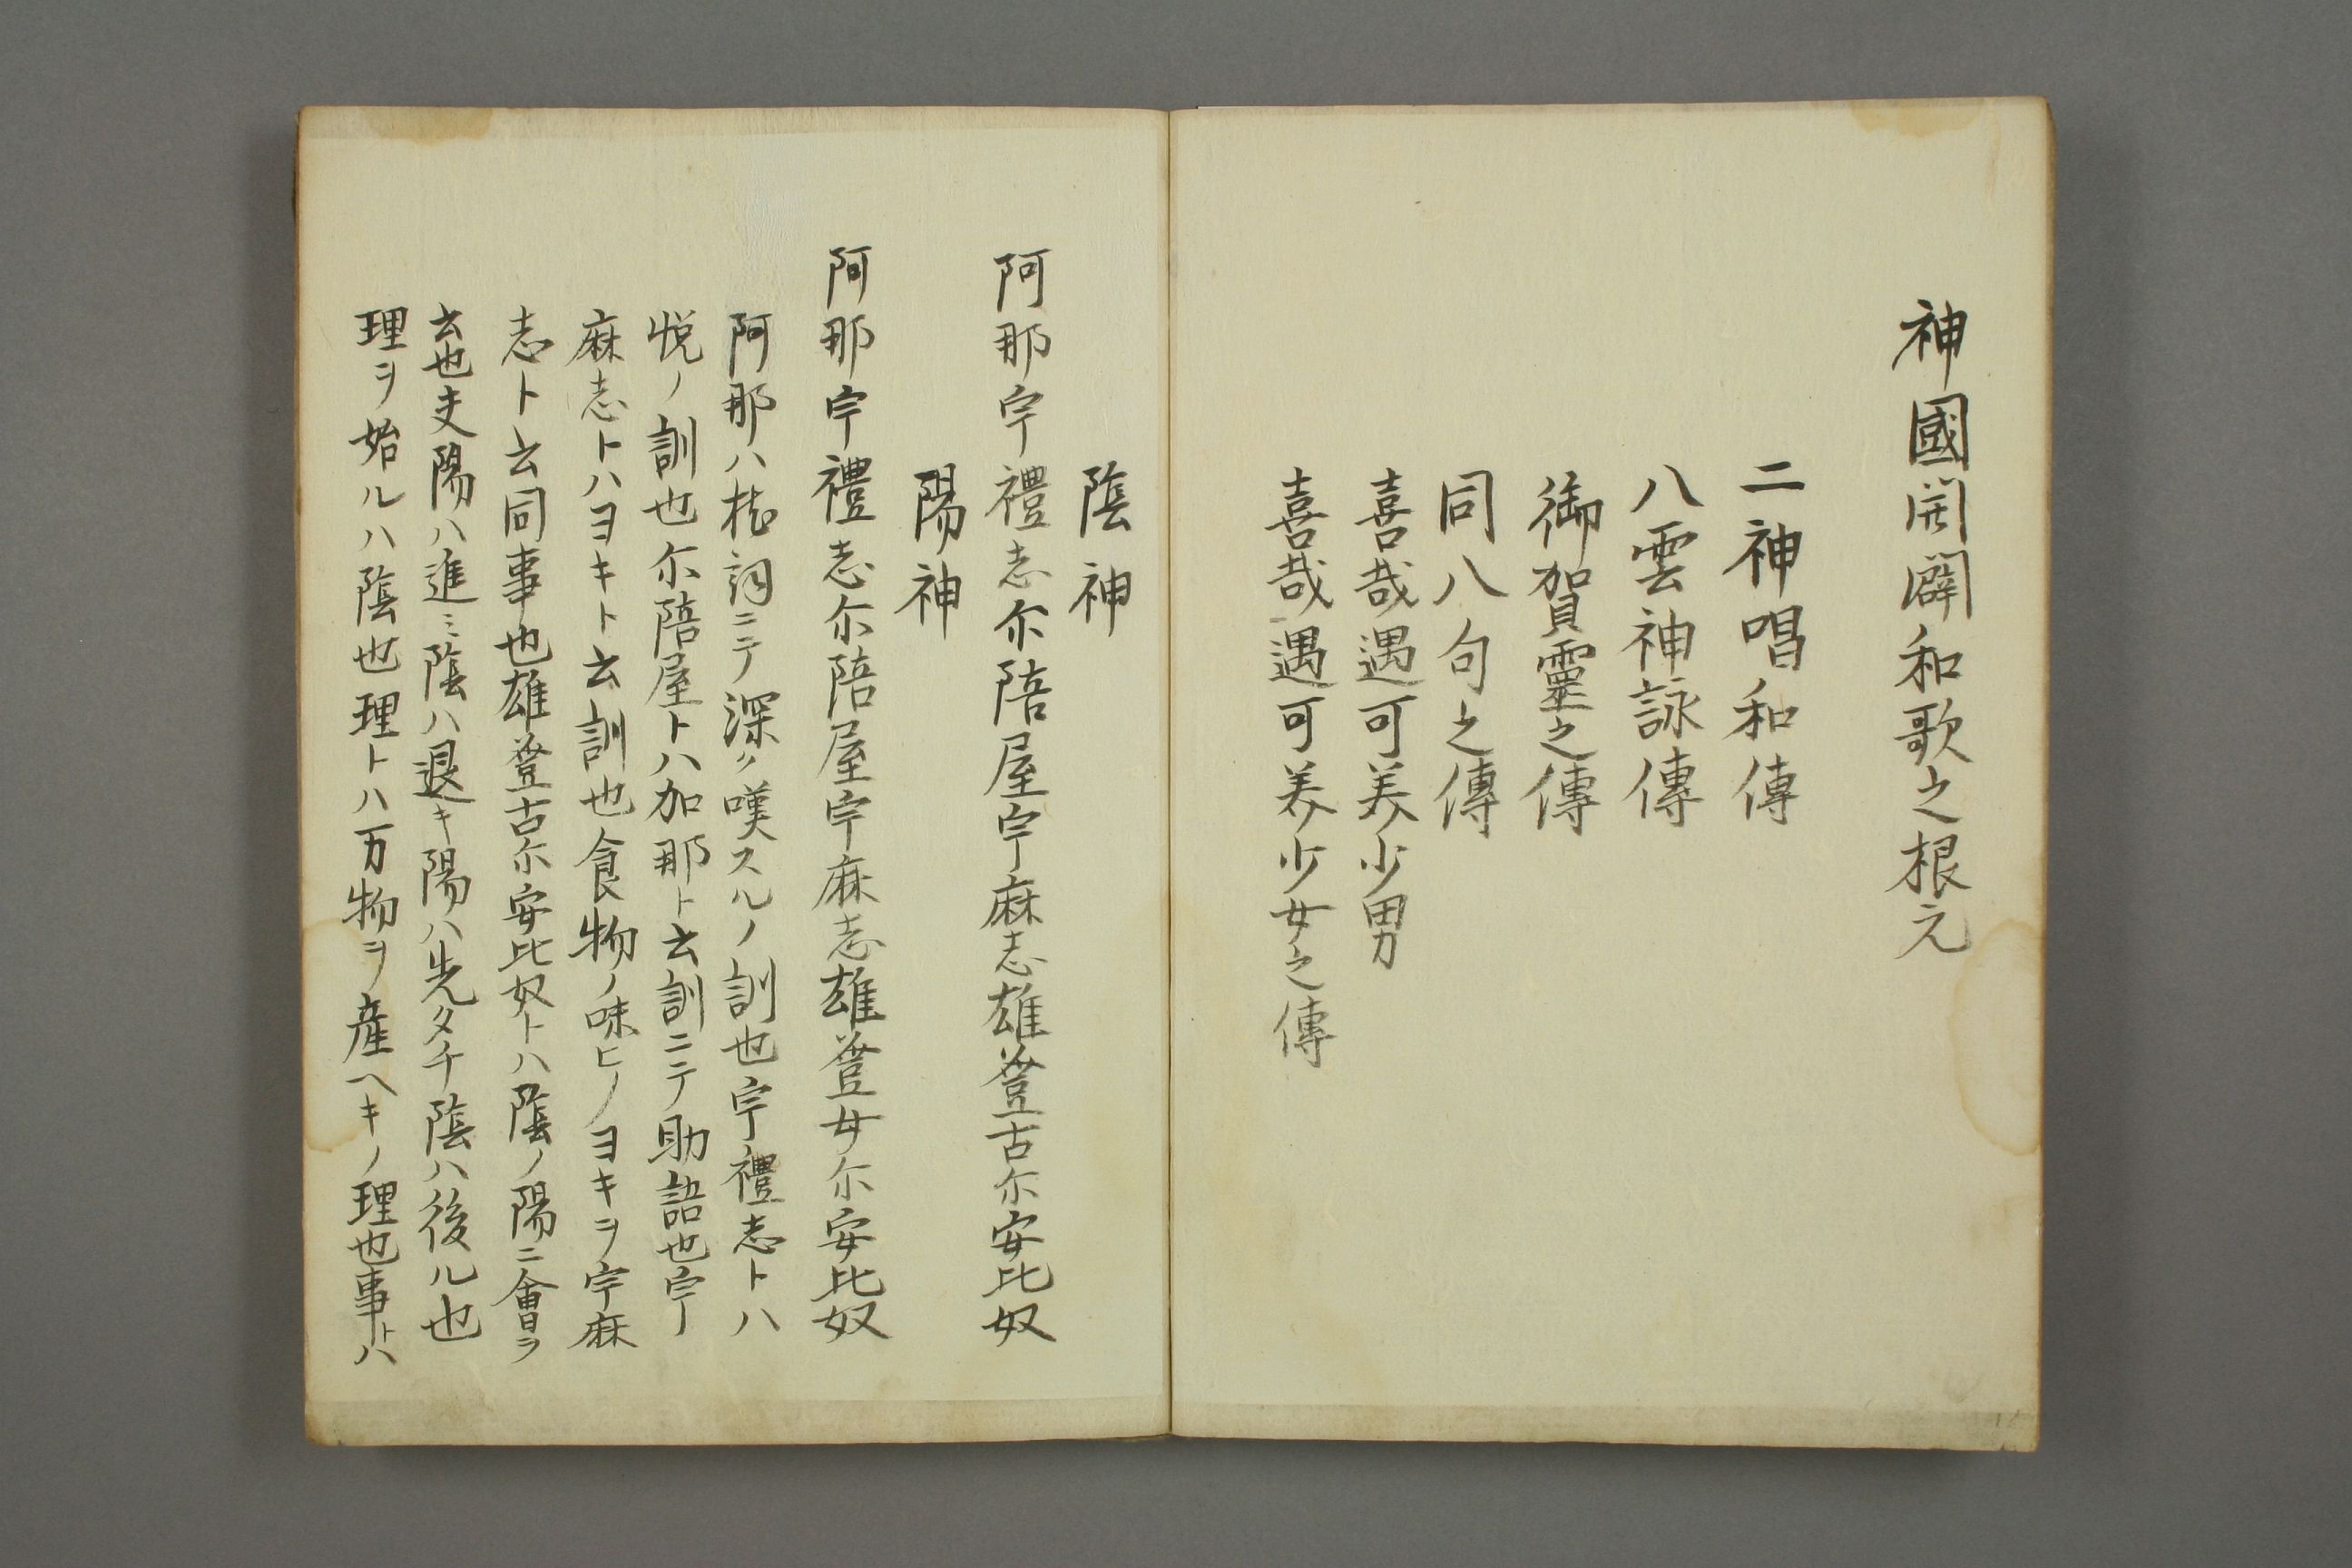 神國開闢和歌之根元
二神唱和傳
八雲神詠傳
御賀靈之傳
同八句之傳
喜哉遇可美少男
喜哉遇可美少女之傳
陰神
阿那宇禮志尓陪屋宇麻志雄登古尓安比奴
陽神
阿那宇禮志尓陪屋宇麻志雄登女尓安比奴
阿那ハ枕詞ニテ深ク嘆スルノ訓也宇禮志トハ
悦ノ訓也尓陪屋トハ加那ト云訓ニテ助語也宇
麻志トハヨキト云訓也食物ノ味ヒノヨキヲ宇麻
志ト云同事也雄登古尓安比奴トハ陰ノ陽ニ會ヲ
云也夫陽ハ進ミ陰ハ退キ陽ハ先タチ陰ハ後ル也
理ヲ始ルハ陰也理トハ万物ヲ産ヘキノ理也事トハ